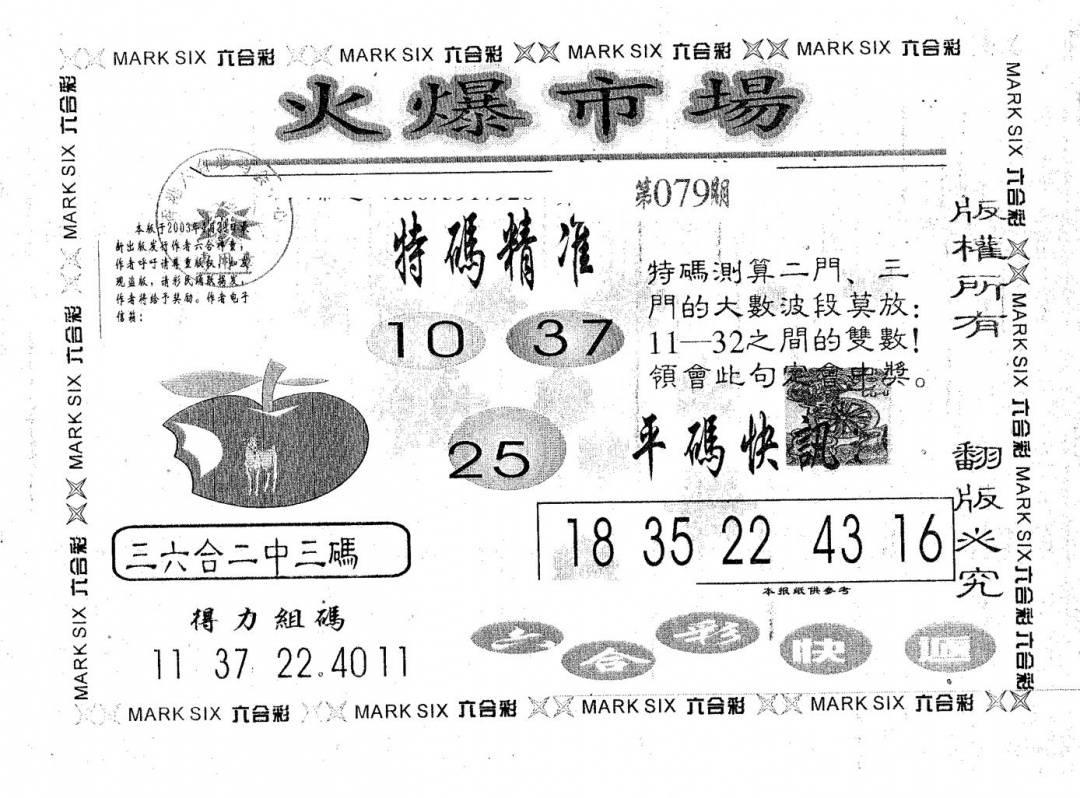 MARK SIX 六合彩 MARK SIX 六合彩 MARK SIX 六合彩 MARK SIX 六合彩
火爆市場
第079期
本版于2003年 月22日
新出版发行作者六合神童,
作者呼吁请尊重版权,如发
现盗版,请彩民踊跃揭发,
作者将给予奖励。作者电子
信箱:
特碼精准
10 37
25
特碼測算二門、三
門的大數波段莫放:
11—32之間的雙數!
領會此句定會中獎。
平碼快訊:
18 35 22 43 16
本报紙供参考
三六合二中三碼
得力組碼
11 37 22.40 11
六合彩快遞
版權所有
翻版必究
MARK SIX 六合彩 MARK SIX 六合彩 MARK SIX 六合彩
MARK SIX 六合彩 MARK SIX 六合彩 MARK SIX 六合彩 六合彩
MARK SIX 六合彩 MARK SIX 六合彩 MARK SIX 六合彩 MARK SIX 六合彩